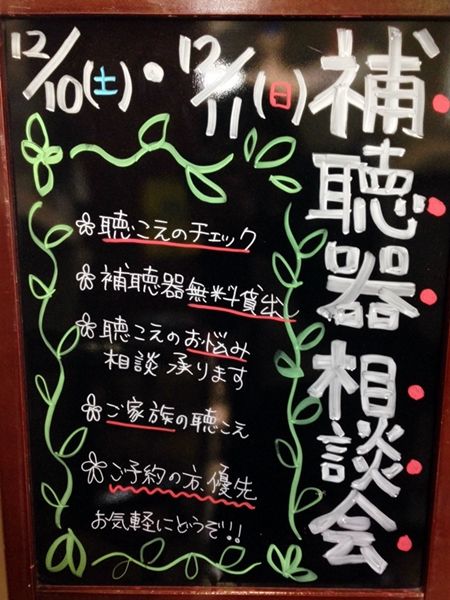 補聴器相談会
12/10(土)・12/11(日)
聴こえのチェック
補聴器無料貸出し
聴こえのお悩み
相談承ります
ご家族の聴こえ
ご予約の方優先
お気軽にどうぞ!!